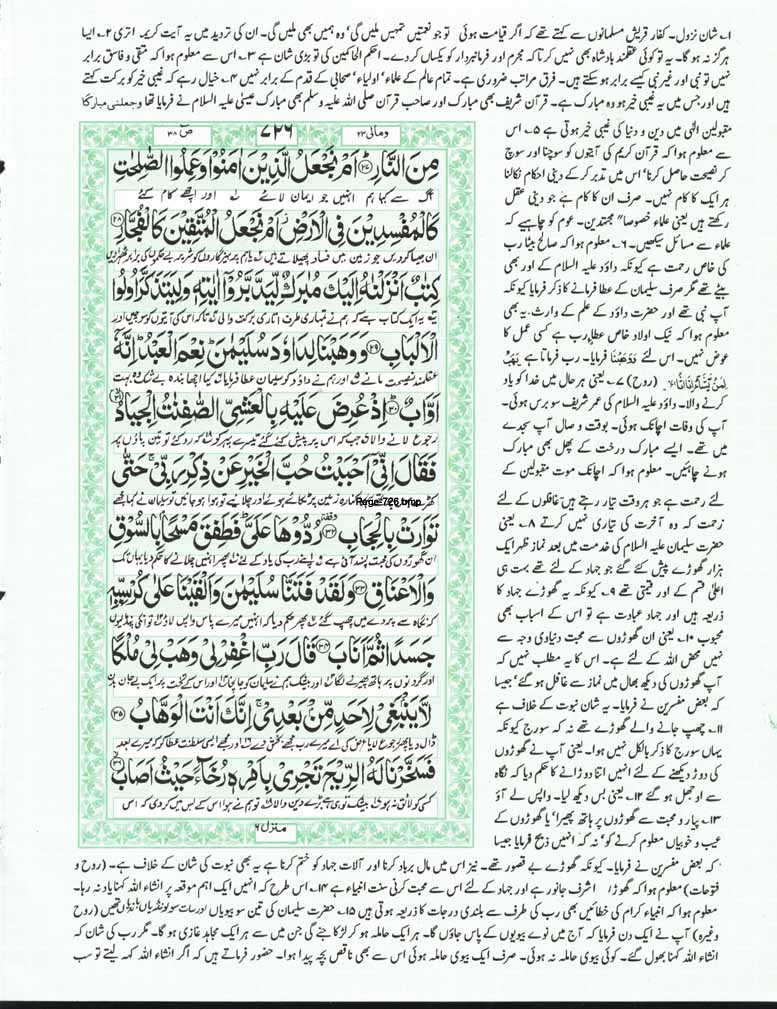 ۱۔ شان نزول۔ کفار قریش مسلمانوں سے کہتے تھے کہ اگر قیامت ہوئی تو جو نعمتیں تمہیں ملیں گی' وہ ہمیں بھی ملیں گی۔ ان کی تردید میں یہ آیت کریمہ اتری ۲۔ ایسا
ہرگز نہ ہو گا۔ یہ تو کوئی عقلمند بادشاہ بھی نہیں کرتا کہ مجرم اور فرمانبردار کو یکساں کر دے۔ احکم الحاکمین کی تو بڑی شان ہے ۳۔ اس سے معلوم ہوا کہ متقی و فاسق برابر
نہیں تو نبی اور غیر نبی کیسے برابر ہو سکتے ہیں۔ فرق مراتب ضروری ہے۔ تمام عالم کے علماء' اولیاء' صحابی کے قدم کے برابر نہیں ۴۔ خیال رہے کہ غیبی خیر کو برکت کہتے
ہیں اور جس میں یہ غیبی خیر ہو وہ مبارک ہے۔ قرآن شریف بھی مبارک اور صاحب قرآن صلی اللہ علیہ وسلم بھی مبارک عیسیٰ علیہ السلام نے فرمایا تھا وجعلنی مبارکا
ومالی ۲۳
۷۲۶
صٓ ۳۸
مِنَ النَّارِ ۲۷ اَمْ نَجْعَلُ الَّذِيْنَ اٰمَنُوْا وَعَمِلُوا الصّٰلِحٰتِ
آگ سے کیا ہم انہیں جو ایمان لائے اور اچھے کام کئے
كَالْمُفْسِدِيْنَ فِي الْاَرْضِ اَمْ نَجْعَلُ الْمُتَّقِيْنَ كَالْفُجَّارِ ۲۸
ان جیسا کر دیں جو زمین میں فساد پھیلاتے ہیں یا ہم پرہیزگاروں کو شریر بے حکموں کی برابر ٹھہرا دیں
كِتٰبٌ اَنْزَلْنٰهُ اِلَيْكَ مُبٰرَكٌ لِّيَدَّبَّرُوْۤا اٰيٰتِهٖ وَلِيَتَذَكَّرَ اُولُوا
یہ ایک کتاب ہے کہ ہم نے تمہاری طرف اتاری برکت والی تاکہ اس کی آیتوں کو سوچیں اور
الْاَلْبَابِ ۲۹ وَوَهَبْنَا لِدَاوٗدَ سُلَيْمٰنَ نِعْمَ الْعَبْدُ اِنَّهٗۤ
عقلمند نصیحت مانیں اور ہم نے داؤد کو سلیمان عطا فرمایا کیا اچھا بندہ بے شک وہ بہت
اَوَّابٌ ۳۰ اِذْ عُرِضَ عَلَيْهِ بِالْعَشِيِّ الصّٰفِنٰتُ الْجِيَادُ ۳۱
رجوع لانے والا جب کہ اس پر پیش کئے گئے تیسرے پہر کو کہ روکئے تو تین پاؤں پر
فَقَالَ اِنِّيْۤ اَحْبَبْتُ حُبَّ الْخَيْرِ عَنْ ذِكْرِ رَبِّيْ حَتّٰى
Page-726.bmp
تَوَارَتْ بِالْحِجَابِ ۳۲ رُدُّوْهَا عَلَيَّ فَطَفِقَ مَسْحًۢا بِالسُّوْقِ
ان گھوڑوں کی محبت پسند آئی ہے اپنے رب کی یاد کے لئے پھر انہیں چلانے کا حکم دیا یہاں تک
وَالْاَعْنَاقِ ۳۳ وَلَقَدْ فَتَنَّا سُلَيْمٰنَ وَاَلْقَيْنَا عَلٰى كُرْسِيِّهٖ
کہ نگاہ سے پردے میں چھپ گئے پھر حکم دیا کہ انہیں میرے پاس واپس لاؤ تو انکی پنڈلیوں
جَسَدًا ثُمَّ اَنَابَ ۳۴ قَالَ رَبِّ اغْفِرْ لِيْ وَهَبْ لِيْ مُلْكًا
اور گردنوں پر ہاتھ پھیرنے لگا اور بیشک ہم نے سلیمان کو جانچا اور اس کے تخت پر ایک بے جان بدن
لَّا يَنْۢبَغِيْ لِاَحَدٍ مِّنْۢ بَعْدِيْ اِنَّكَ اَنْتَ الْوَهَّابُ ۳۵
ڈال دیا پھر رجوع لایا عرض کی اے میرے رب مجھے بخش دے اور مجھے ایسی سلطنت عطا کر کہ میرے بعد
فَسَخَّرْنَا لَهُ الرِّيْحَ تَجْرِيْ بِاَمْرِهٖ رُخَآءً حَيْثُ اَصَابَ ۳۶
کسی کو لائق نہ ہو بیشک تو ہی ہے بڑی دین والا تو ہم نے ہوا اس کے بس میں کر دی کہ اس
منزل ۶
مقبولین الٰہی میں دین و دنیا کی غیبی خیر ہوتی ہے ۵۔ اس
سے معلوم ہوا کہ قرآن کریم کی آیتوں کو سوچنا اور سوچ
کر نصیحت حاصل کرنا' اس میں تدبر کر کے دینی احکام نکالنا
ہر ایک کا کام نہیں۔ صرف ان کا کام ہے جو دینی عقل
رکھتے ہیں یعنی علماء خصوصا" مجتہدین۔ عوام کو چاہیے کہ
علماء سے مسائل سیکھیں۔ ۶۔ معلوم ہوا کہ صالح بیٹا رب
کی خاص رحمت ہے کیونکہ داؤد علیہ السلام کے اور بھی
بیٹے تھے مگر صرف سلیمان کے عطا فرمانے کا ذکر فرمایا کیونکہ
آپ نبی تھے اور حضرت داؤد کے علم کے وارث۔ یہ بھی
معلوم ہوا کہ نیک اولاد خاص عطا رب ہے کسی عمل کا
عوض نہیں۔ اس لئے وَوَهَبْنَا فرمایا۔ رب فرماتا ہے يَهَبُ
لِمَنْ يَّشَآءُ اِنَاثًا (روح) ۷۔ یعنی ہر حال میں خدا کو یاد
کرنے والا۔ داؤد علیہ السلام کی عمر شریف سو برس ہوئی۔
آپ کی وفات اچانک ہوئی۔ بوقت وصال آپ سجدے
میں تھے۔ ایسے مبارک درخت کے پھل بھی مبارک
ہونے چاہئیں۔ معلوم ہوا کہ اچانک موت مقبولین کے
لئے رحمت ہے جو ہر وقت تیار رہتے ہیں غافلوں کے لئے
زحمت کہ وہ آخرت کی تیاری نہیں کرتے ۸۔ یعنی
حضرت سلیمان علیہ السلام کی خدمت میں بعد نماز ظہر ایک
ہزار گھوڑے پیش کئے گئے جو جہاد کے لئے تھے بہت ہی
اعلیٰ قسم کے اور قیمتی تھے ۹۔ کیونکہ یہ گھوڑے جہاد کا
ذریعہ ہیں اور جہاد عبادت ہے تو اس کے اسباب بھی
محبوب ۱۰۔ یعنی ان گھوڑوں سے محبت دنیاوی وجہ سے
نہیں محض اللہ کے لئے ہے۔ اس کا یہ مطلب نہیں کہ
آپ گھوڑوں کی دیکھ بھال میں نماز سے غافل ہو گئے' جیسا
کہ بعض مفسرین نے فرمایا۔ یہ شان نبوت کے خلاف ہے
۱۱۔ چھپ جانے والے گھوڑے تھے نہ کہ سورج کیونکہ
یہاں سورج کا ذکر بالکل نہیں ہوا۔ یعنی آپ نے گھوڑوں
کی دوڑ دیکھنے کے لئے انہیں اتنا دوڑانے کا حکم دیا کہ نگاہ
سے اوجھل ہو گئے ۱۲۔ یعنی بس دیکھ لیا۔ واپس لے آؤ
۱۳۔ پیار و محبت سے گھوڑوں پر ہاتھ پھیرا' یا گھوڑوں کے
عیب و خوبیاں معلوم کرنے کو' نہ کہ انہیں ذبح فرمایا جیسا
کہ بعض مفسرین نے فرمایا۔ کیونکہ گھوڑے بے قصور تھے۔ نیز اس میں مال برباد کرنا اور آلات جہاد کو ختم کرنا ہے یہ بھی نبوت کی شان کے خلاف ہے۔ (روح و
فتوحات) معلوم ہوا کہ گھوڑا اشرف جانور ہے اور جہاد کے لئے اس سے محبت کرنی سنت انبیاء ہے ۱۴۔ اس طرح کہ انہیں ایک اہم موقعہ پر انشاء اللہ کہنا یاد نہ رہا۔
معلوم ہوا کہ انبیاء کرام کی خطائیں بھی رب کی طرف سے بلندی درجات کا ذریعہ ہوتی ہیں ۱۵۔ حضرت سلیمان کی تین سو بیویاں اور سات سو لونڈیاں باندیاں تھیں (روح
وغیرہ) آپ نے ایک دن فرمایا کہ آج میں نوے بیویوں کے پاس جاؤں گا۔ ہر ایک حاملہ ہو کر لڑکا جنے گی جن میں سے ہر ایک مجاہد غازی ہو گا۔ مگر رب کی شان کہ
انشاء اللہ کہنا بھول گئے۔ کوئی بیوی حاملہ نہ ہوئی۔ صرف ایک بیوی حاملہ ہوئی اس سے بھی ناقص بچہ پیدا ہوا۔ حضور فرماتے ہیں کہ اگر انشاء اللہ کہہ لیتے تو سب